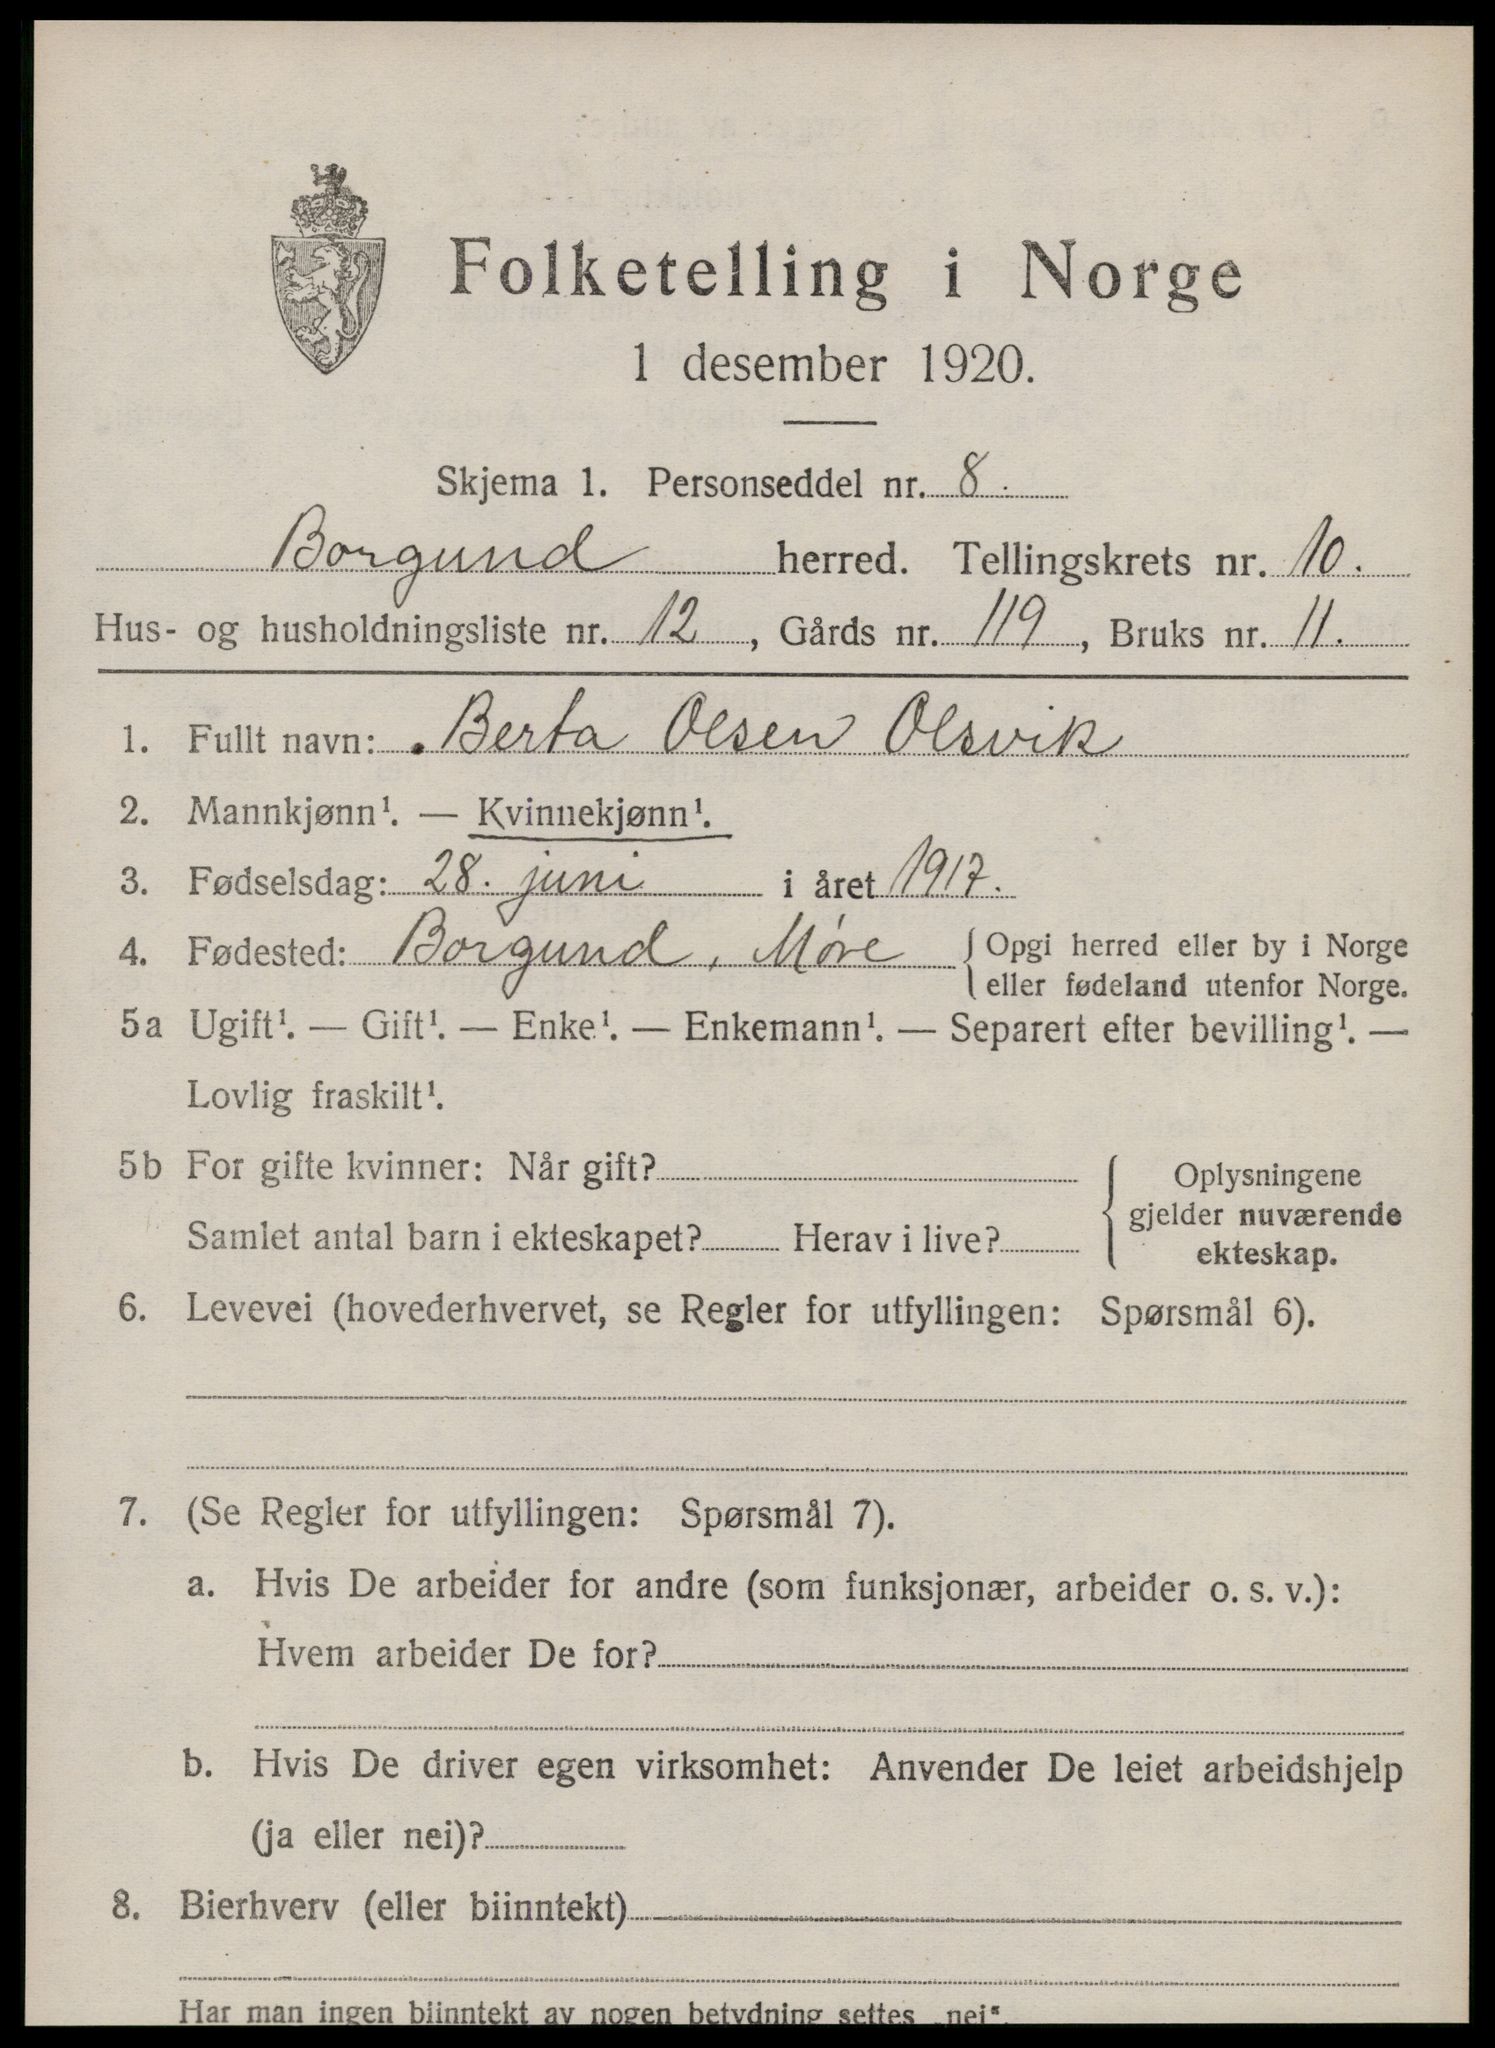 Folketelling i Norge
1 desember 1920.
Skjema 1. Personseddel nr. 8.
Borgund herred. Tellingskrets nr. 10.
Hus- og husholdningsliste nr. 12, Gårds nr. 119, Bruks nr. 11.
1. Fullt navn: Berta Olsen Olsvik
2. Mannkjønn¹. — Kvinnekjønn¹.
3. Fødselsdag: 28. juni i året 1917.
4. Fødested: Borgund, Møre { Opgi herred eller by i Norge
eller fødeland utenfor Norge.
5a Ugift¹. — Gift¹. — Enke¹. — Enkemann¹. — Separert efter bevilling¹. —
Lovlig fraskilt¹.
5b For gifte kvinner: Når gift?
Samlet antal barn i ekteskapet? Herav i live?
{ Oplysningene
gjelder nuværende
ekteskap.
6. Levevei (hovederhvervet, se Regler for utfyllingen: Spørsmål 6).
7. (Se Regler for utfyllingen: Spørsmål 7).
a. Hvis De arbeider for andre (som funksjonær, arbeider o. s. v.):
Hvem arbeider De for?
b. Hvis De driver egen virksomhet: Anvender De leiet arbeidshjelp
(ja eller nei)?
8. Bierhverv (eller biinntekt)
Har man ingen biinntekt av nogen betydning settes „nei“.